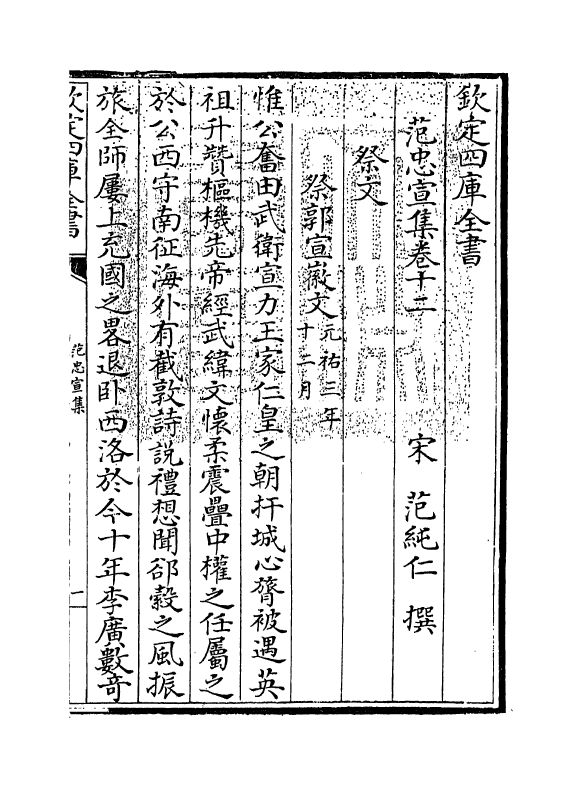 欽定四庫全書
范忠宣集卷十二
宋 范純仁 撰
祭文
祭郭宣徽文元祐三年十二月
惟公奮由武衛宣力王家仁皇之朝扞城心膂被遇英
祖升贊樞機先帝經武緯文懷柔震疊中權之任屬之
於公西守南征海外有截敦詩說禮想聞郤縠之風振
旅全師屢上充國之畧退卧西洛於今十年李廣數奇
欽定四庫全書
范忠宣集
一